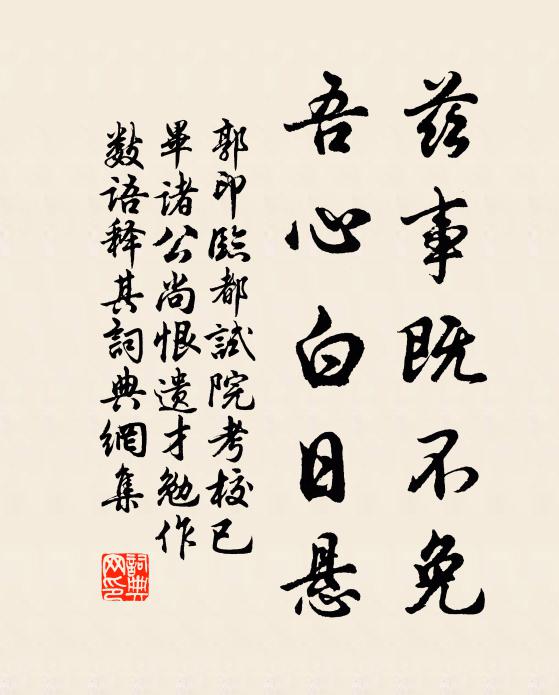 兹事既不免
吾心白日悬
郭印临都試院考校已
畢諸公尚恨遗才勉作
数語释其詞典網集
詞典网印